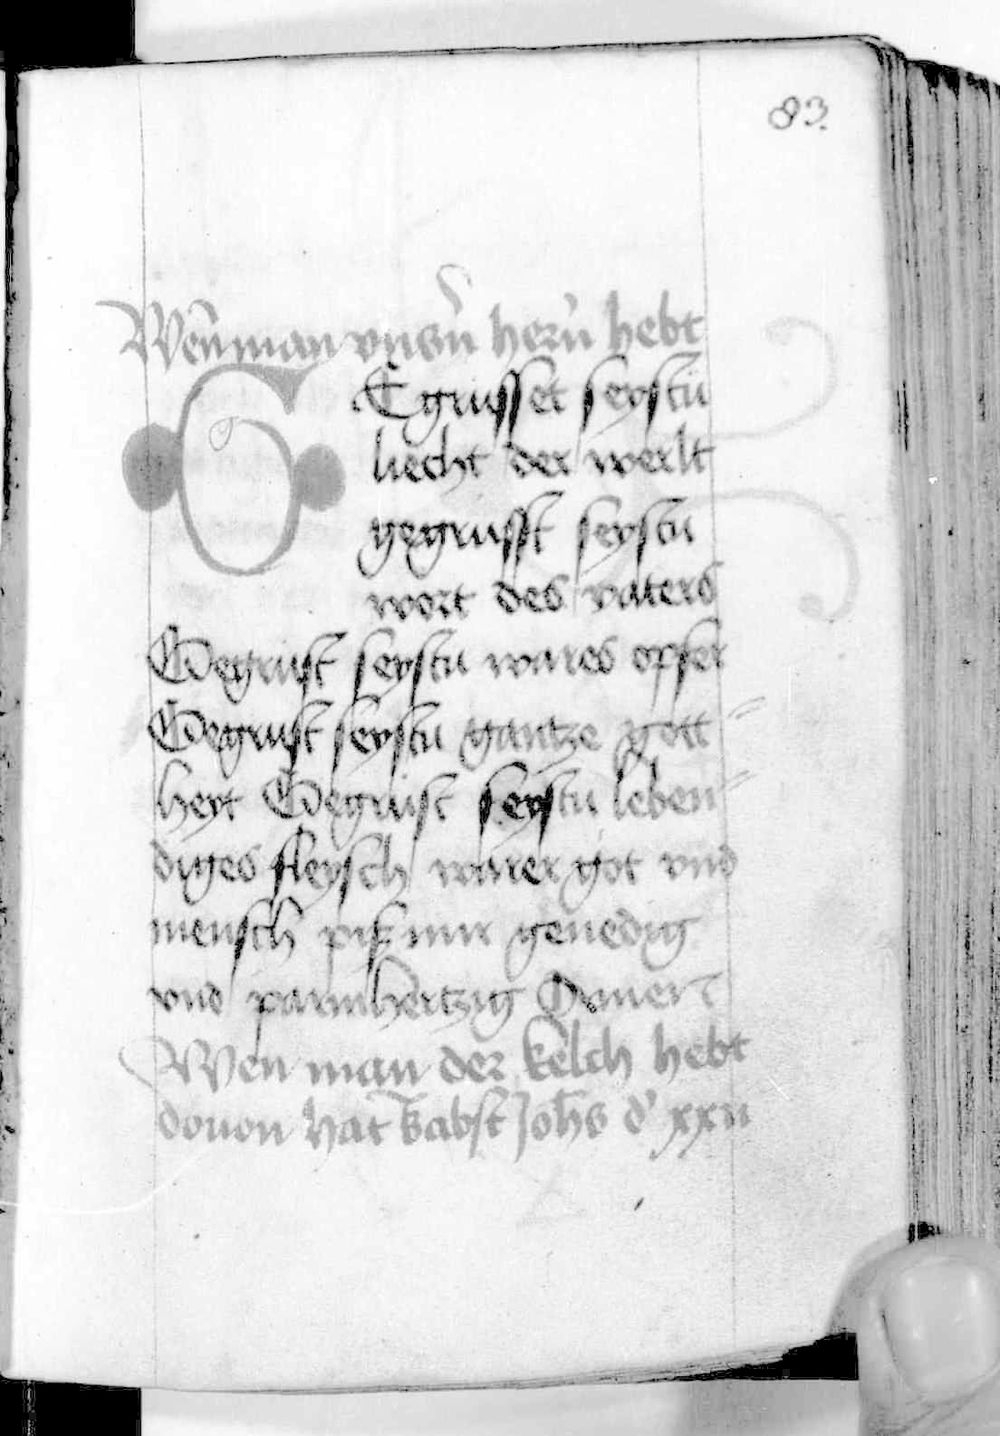 83.
Wen̄ man vnsn̄ hern̄ hebt
GEgrusset seystu
liecht der werlt
gegrusst seystu
wort des vaters
Gegrust seystu wares opfer
Gegrust seystu gantze gott-
heyt Gegrust seystu leben-
diges fleysch warer got vnd
mensch piß mir genedig
vnd parmhertzig Amen
Wen man der kelch hebt
douon hat babst Johs d' xxii